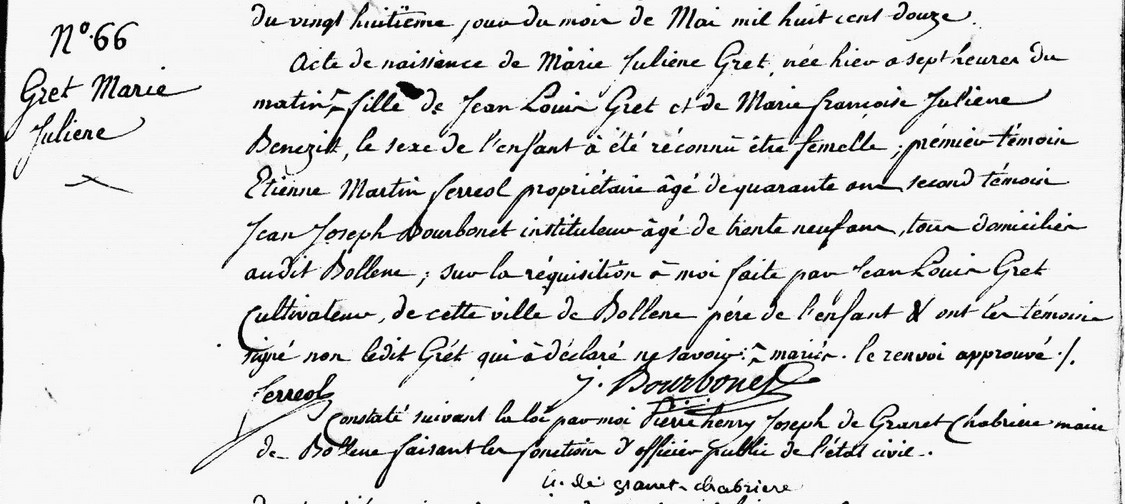 N.º 66
Gret Marie
Juliene
du vingt huitième jour du mois de Mai mil huit cent douze.
Acte de naissence de Marie Juliene Gret, née hier a sept heures du
matin, fille de Jean Louis Gret et de Marie françoise Juliene
Benezitt, le sexe de l'enfant à été réconnu être femelle ; prémier témoin
Etienne Martin ferreol propriétaire âgé de quarante ans second témoin
Jean Joseph Bourbonet instituteur âgé de trente neuf ans, tous domiciliés
audit Bollene ; sur la réquisition à moi faite par Jean Louis Gret
Cultivateur, de cette ville de Bollene pére de l'enfant & ont les témoins
signé non ledit Grét qui à déclaré ne savoir. mariés. le renvoi approuvé ./.
ferreol J. Bourbonet
Constaté suivant la loi par moi Pierre henry Joseph de Granet Chabriere maire
de Bollene faisant les fonctions d'officier public de l'état civil.
de granet-chabriere